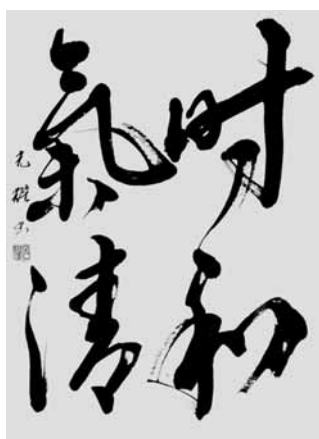 时和
氣清